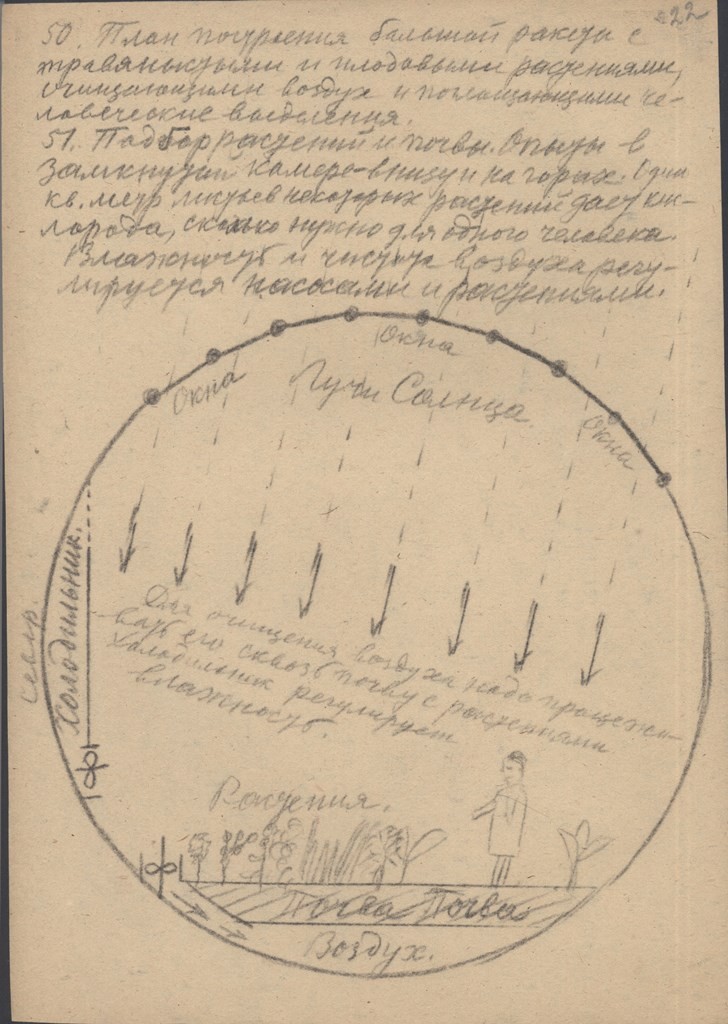 22
50. План построения большой ракеты с
травянистыми и плодовыми растениями,
очищающими воздух и поглощающими че-
ловеческие выделения.
51. Подбор растений и почвы. Опыты в
замкнутой камере - внизу и на горах. Один
кв. метр листьев некоторых растений дает кис-
лорода, сколько нужно для одного человека.
Влажность и чистота воздуха регу-
лируется насосами и растениями.
Окна
Окна
Окна
Лучи Солнца.
Холодильник.
Для очищения воздуха надо процежи-
вать его сквозь почву с растениями
Холодильник регулирует
влажность.
Растения.
Почва Почва
Воздух.